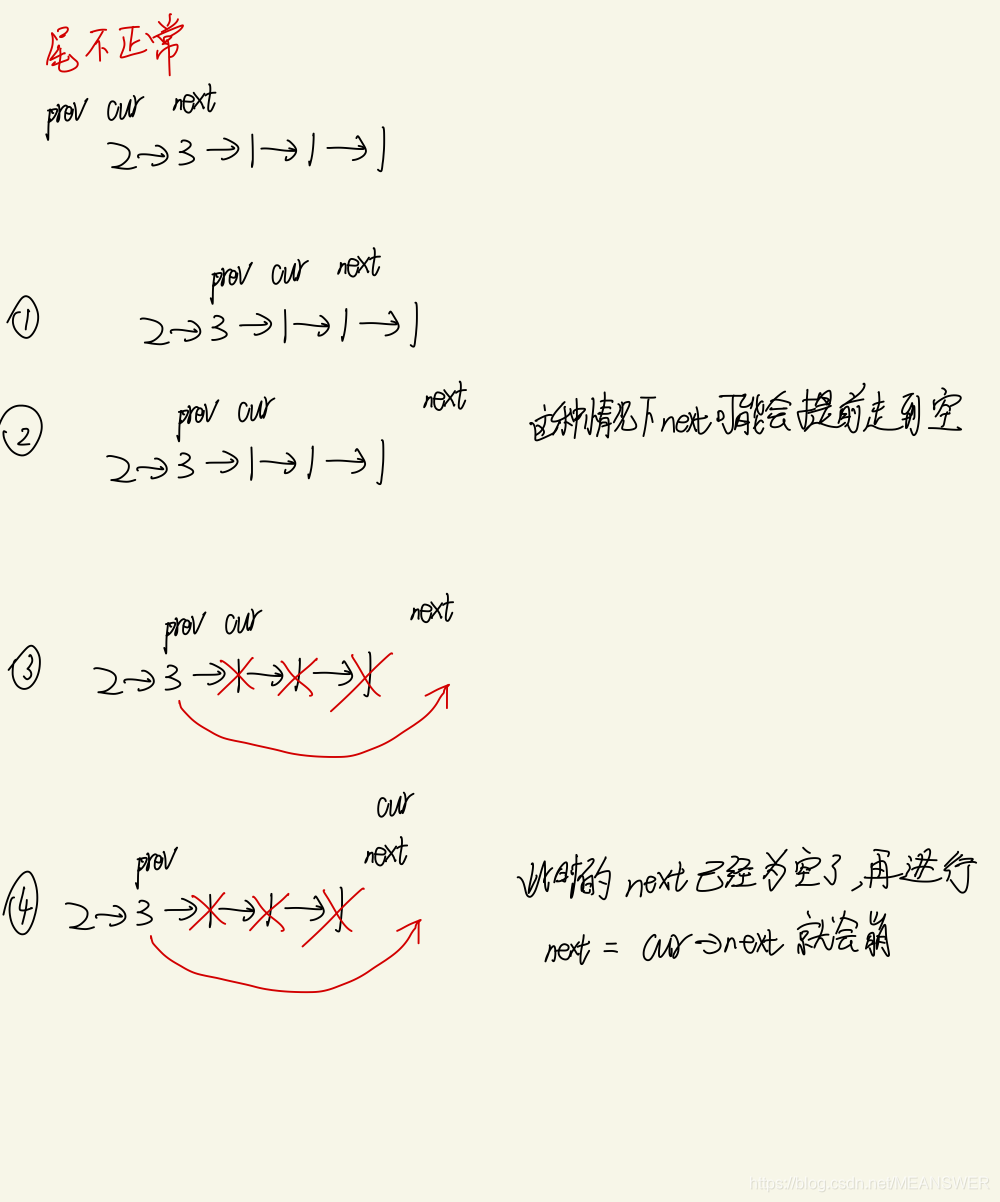 尾不正常
prov cur next
2→3→1→1→1
prov cur next
① 2→3→1→1→1
prov cur next
② 2→3→1→1→1 这种情况下next可能会提前走到空
prov cur next
③ 2→3→1→1→1
cur
prov next
④ 2→3→1→1→1 此时的next已经为空了,再进行
next = cur→next 就会崩
https://blog.csdn.net/MEANSWER